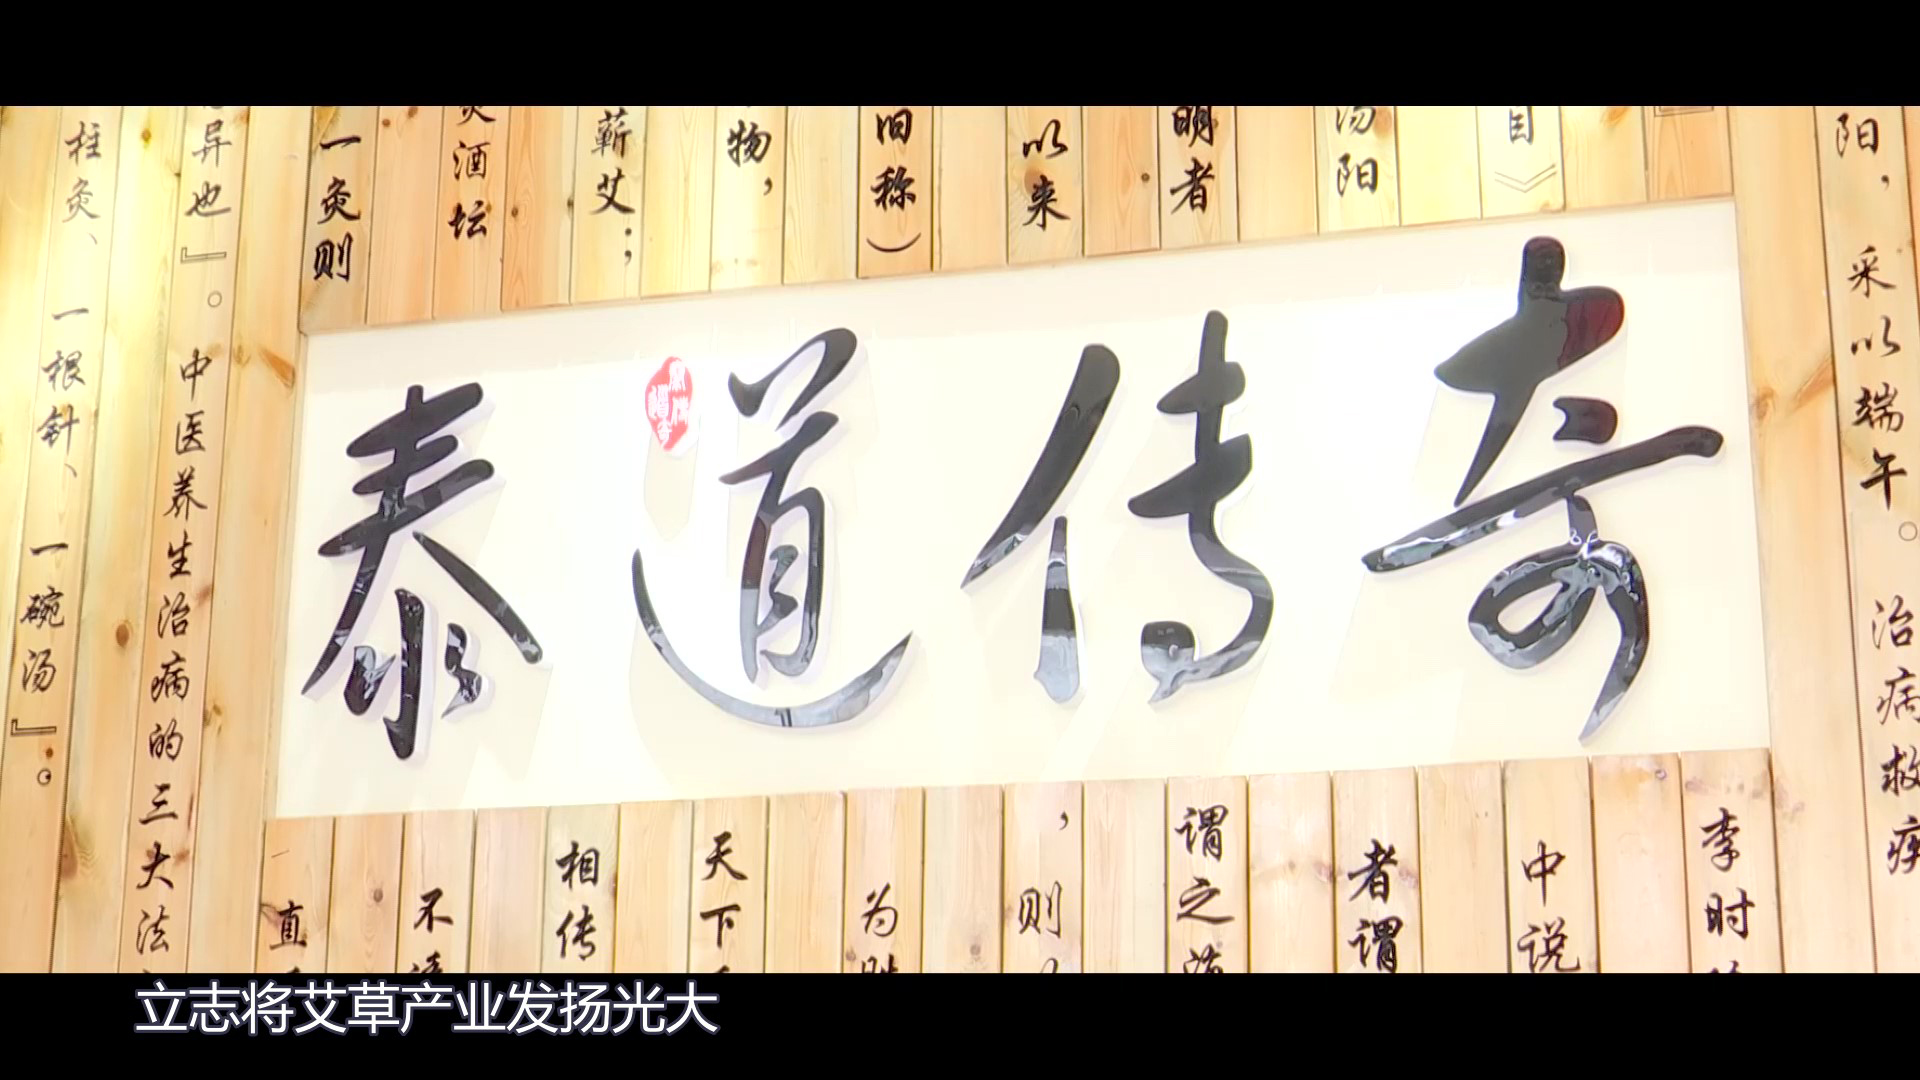 泰道传奇
阳，采以端午。治病救
目》
李时
汤阳
中说
明者
者谓
以来
谓之
旧称）
，则
物，
为
蕲艾；
天下
酒坛
相传
一灸则
不
直
异也』。中医养生治病的三大法
柱灸、一根针、一碗汤』。
立志将艾草产业发扬光大